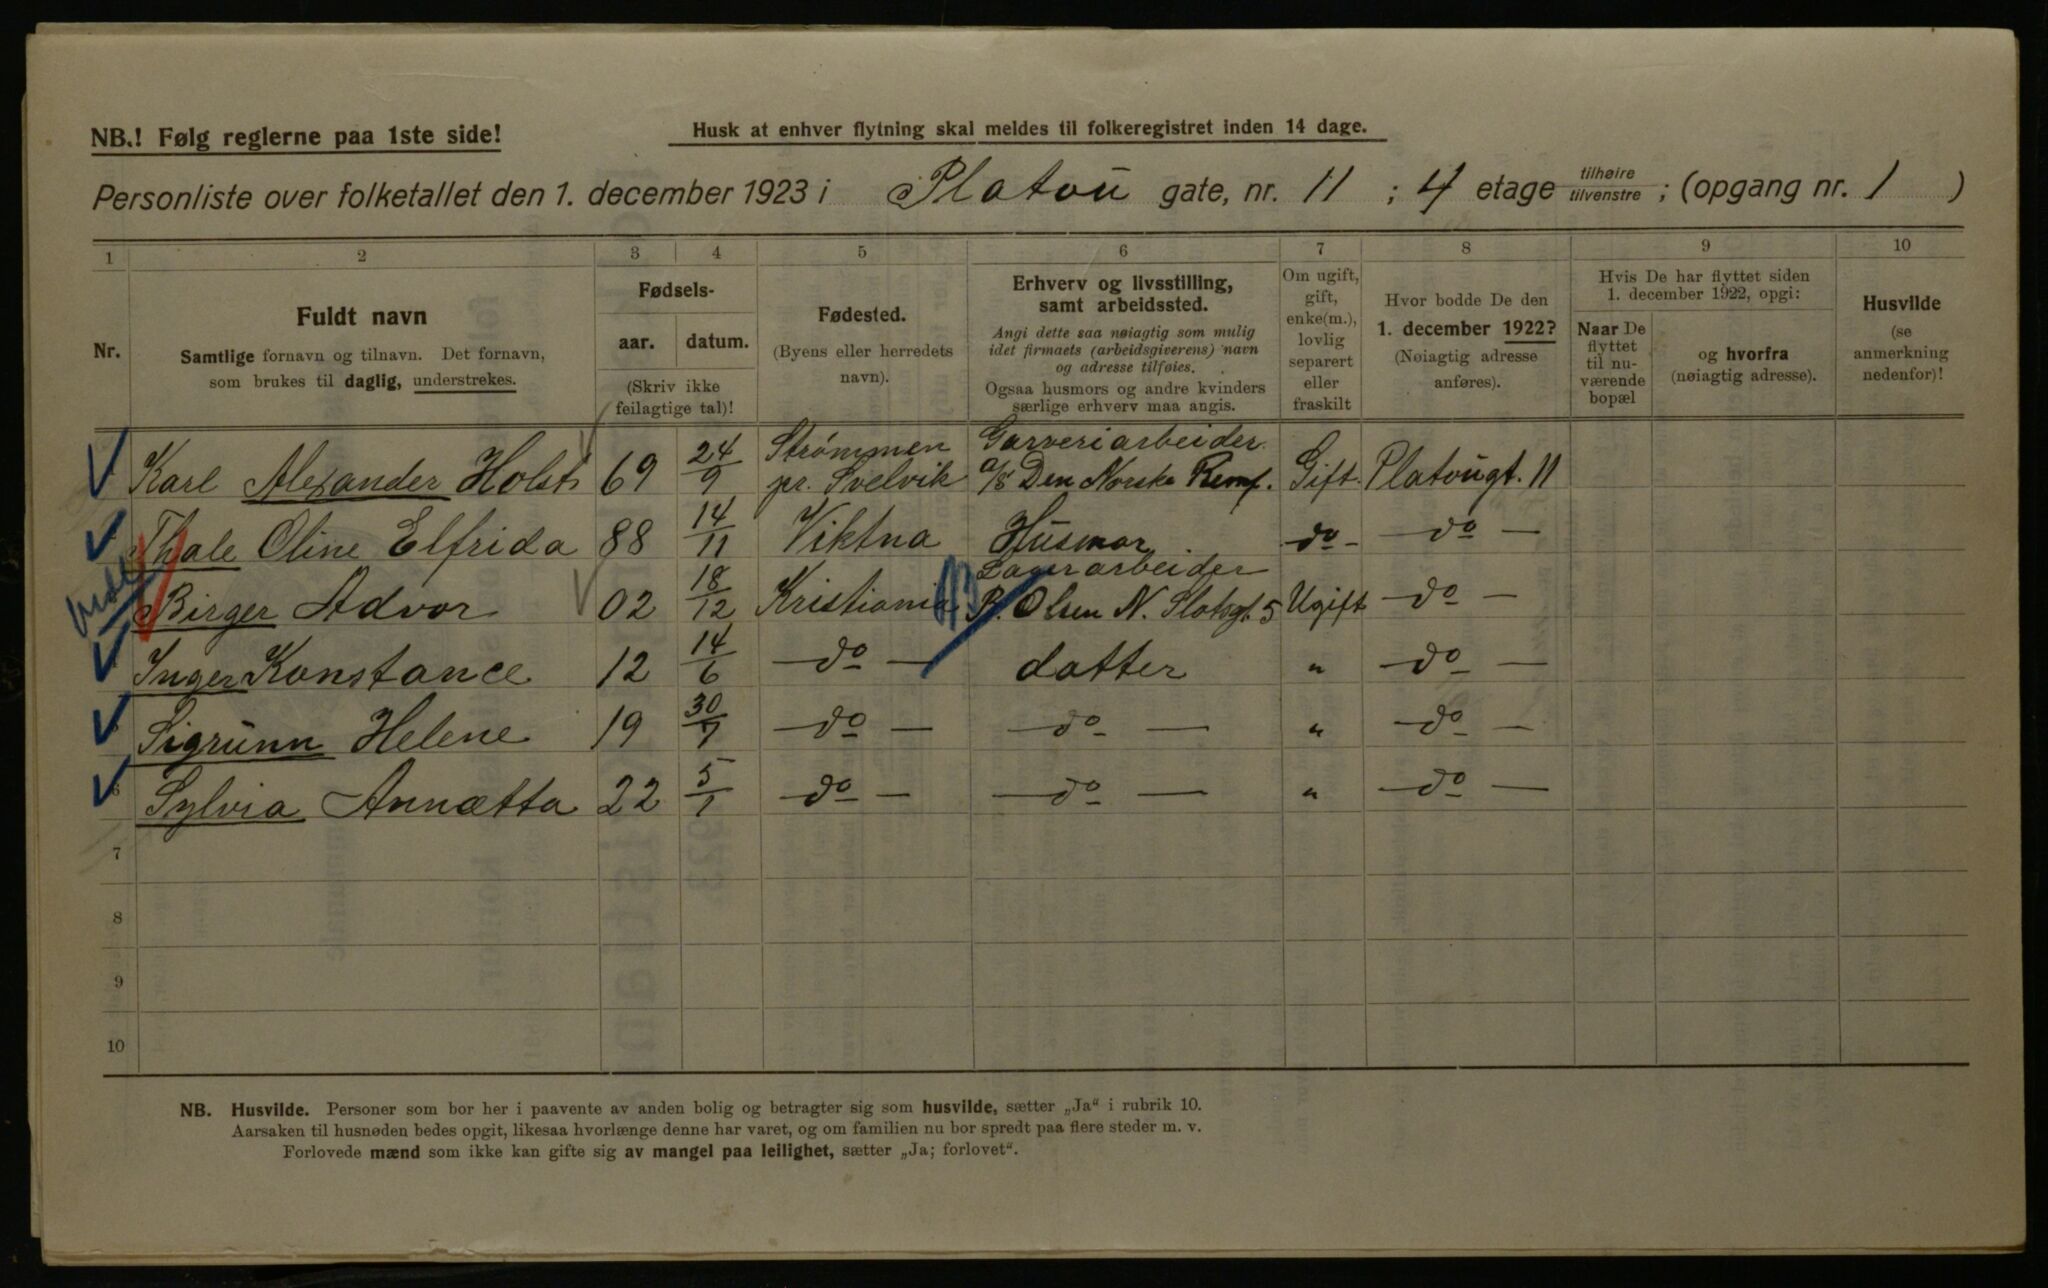 NB.! Følg reglerne paa 1ste side!
Husk at enhver flytning skal meldes til folkeregistret inden 14 dage.
Personliste over folketallet den 1. december 1923 i Platou gate, nr. 11 ; 4 etage tilhøire tilvenstre ; (opgang nr. 1 )
1 2 3 4 5 6 7 8 9 10
Nr.
Fuldt navn
Samtlige fornavn og tilnavn. Det fornavn,
som brukes til daglig, understrekes.
Fødsels-
aar. datum.
(Skriv ikke
feilagtige tal)!
Fødested.
(Byens eller herredets
navn).
Erhverv og livsstilling,
samt arbeidssted.
Angi dette saa nøiagtig som mulig
idet firmaets (arbeidsgiverens) navn
og adresse tilføies.
Ogsaa husmors og andre kvinders
særlige erhverv maa angis.
Om ugift,
gift,
enke(m.),
lovlig
separert
eller
fraskilt
Hvor bodde De den
1. december 1922?
(Nøiagtig adresse
anføres).
Hvis De har flyttet siden
1. december 1922, opgi:
Naar De
flyttet
til nu-
værende
bopæl
og hvorfra
(nøiagtig adresse).
Husvilde
(se
anmerkning
nedenfor)!
Karl Alexander Holst 69 24/9 Strømmen pr. Svelvik Garveriarbeider a/s Den Norske Remf. Gift Platougt. 11
Thale Oline Elfrida 88 14/11 Viktna Husmor do - do -
Birger Advor 02 18/12 Kristiania Lagerarbeider P. Olsen N. Slotsgt. 5 Ugift - do -
Inger Konstance 12 14/6 - do - datter " - do -
Sigrunn Helene 19 30/7 - do - - do - " - do -
6 Sylvia Annætta 22 5/1 - do - - do - " - do -
7
8
9
10
NB. Husvilde. Personer som bor her i paavente av anden bolig og betragter sig som husvilde, sætter „Ja“ i rubrik 10.
Aarsaken til husnøden bedes opgit, likesaa hvorlænge denne har varet, og om familien nu bor spredt paa flere steder m. v.
Forlovede mænd som ikke kan gifte sig av mangel paa leilighet, sætter „Ja; forlovet“.